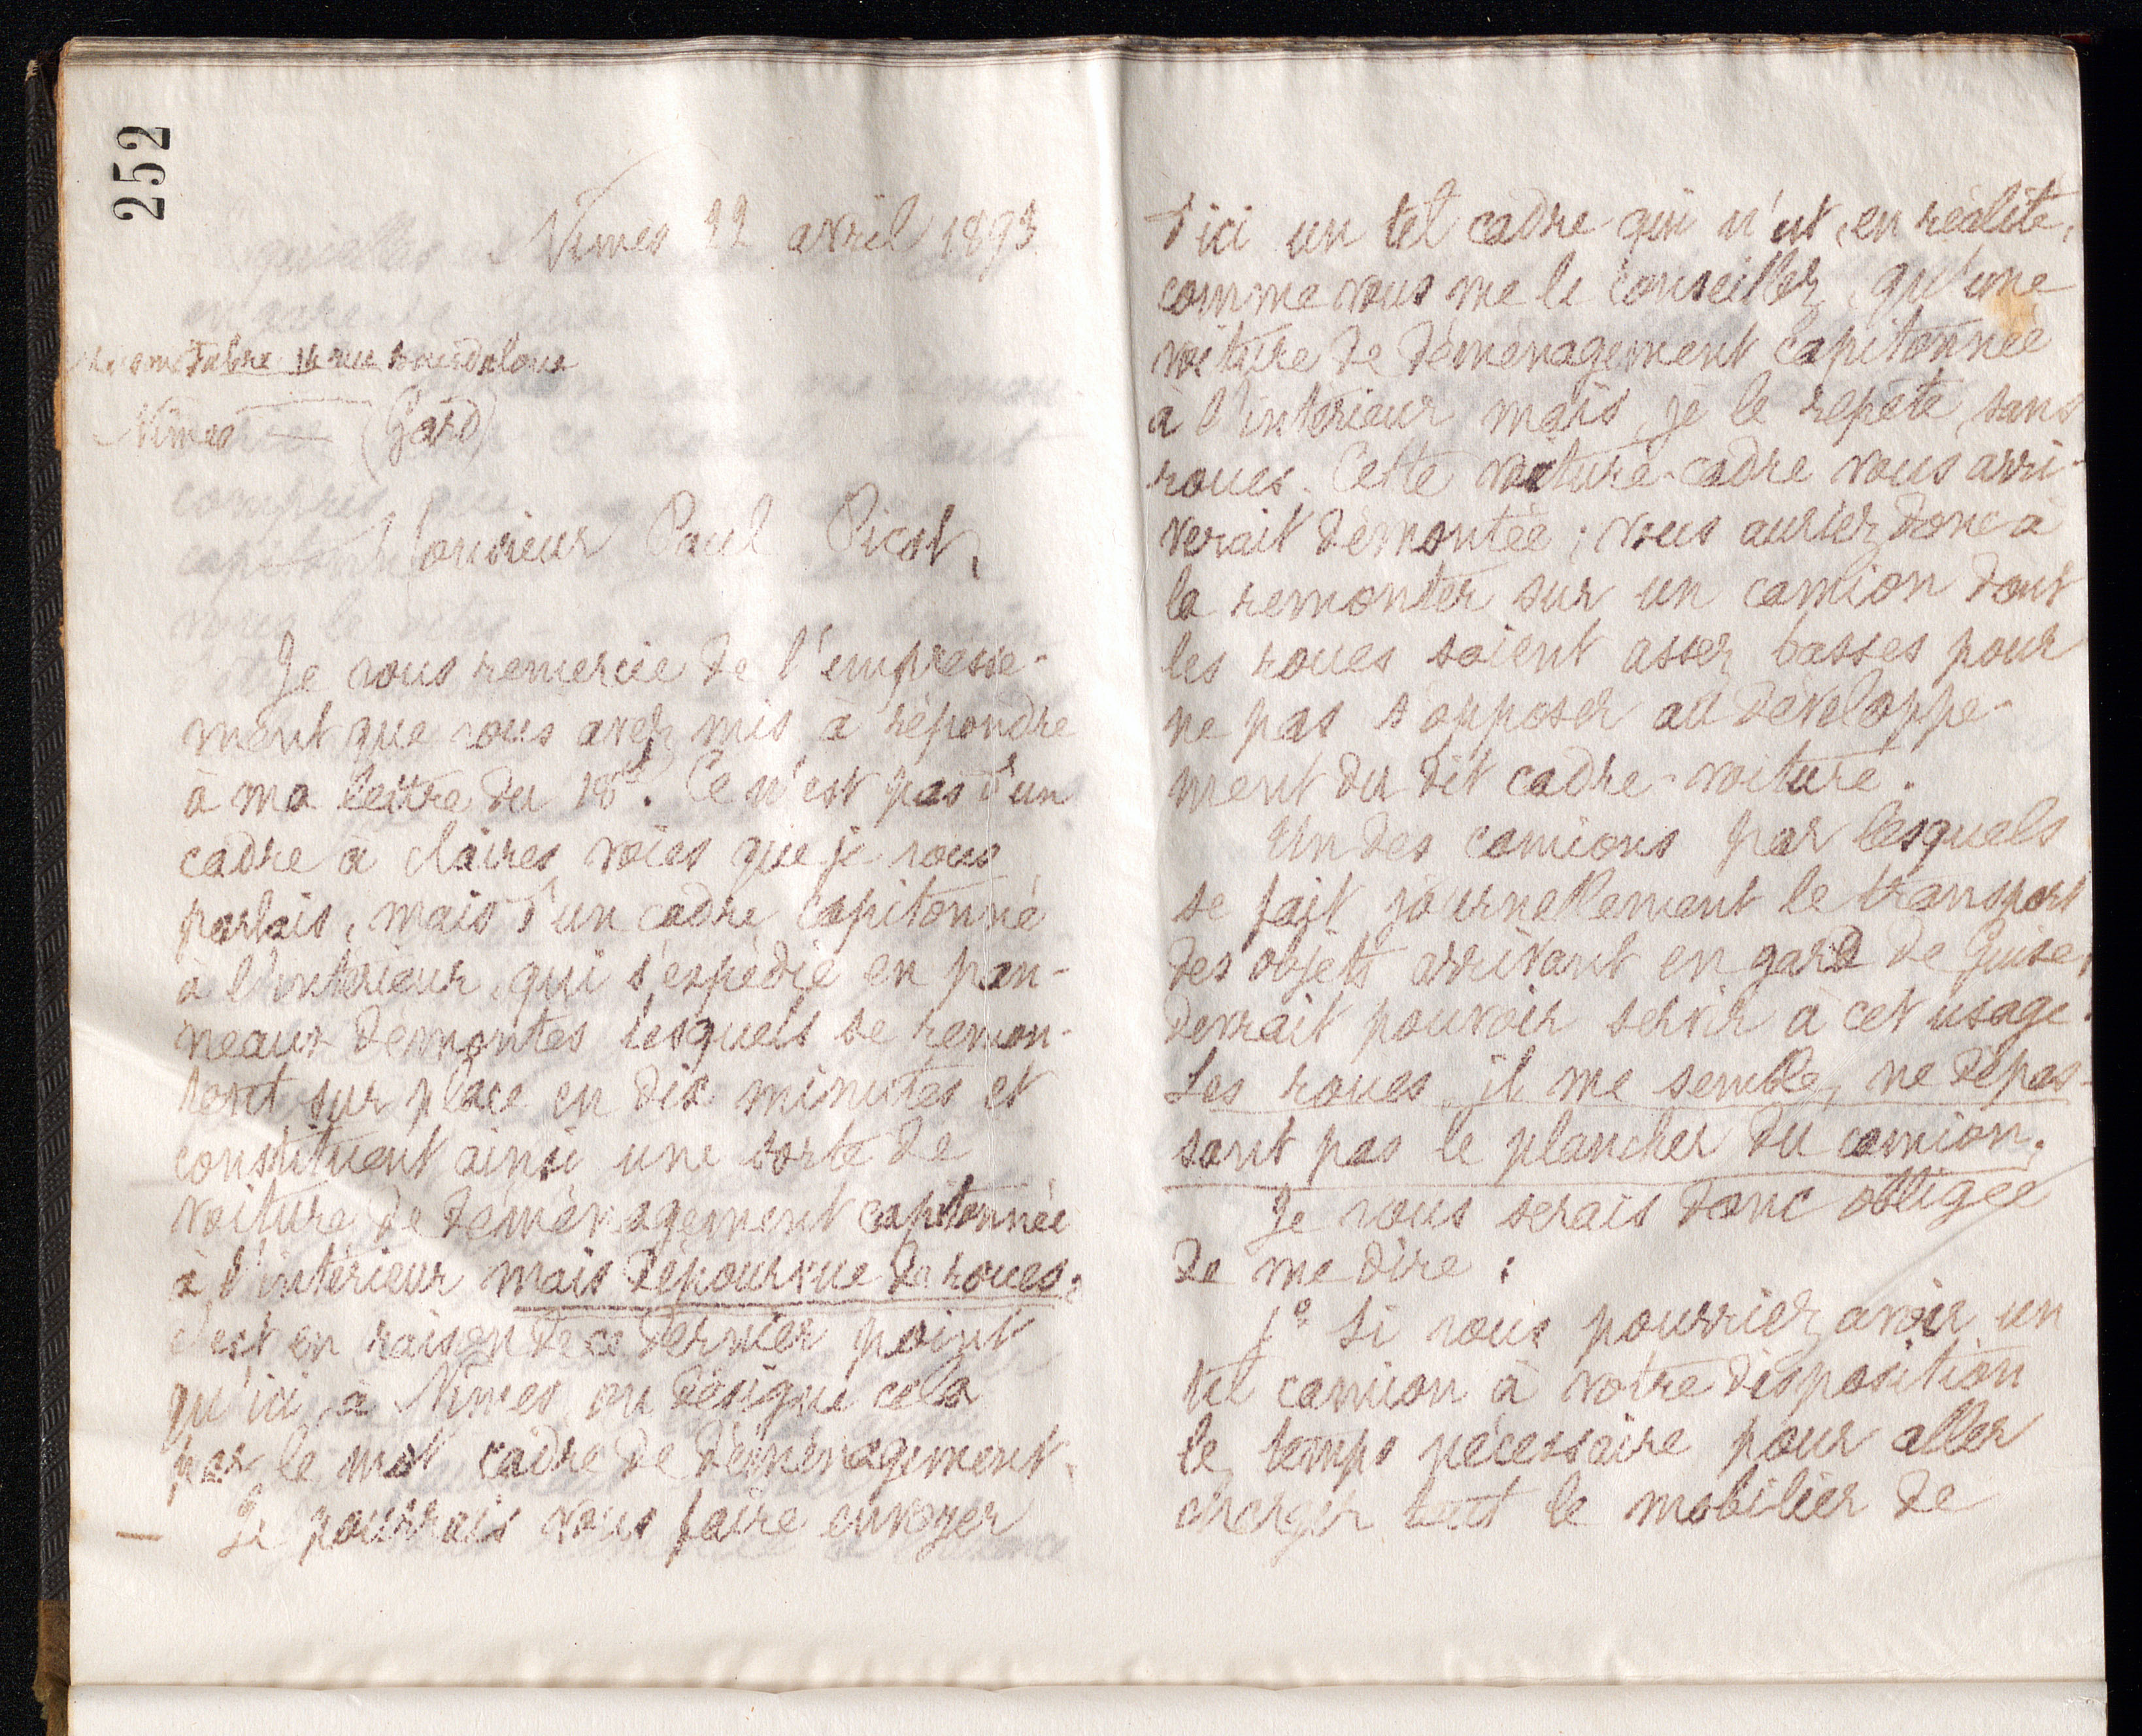 252
Nîmes 22 avril 1893
Fabre 14 rue Bourdaloue
Nîmes — (Gard)
Monsieur Paul Picot,
Je vous remercie de l'empresse-
ment que vous avez mis à répondre
à ma lettre du 18ct. Ce n'est pas d'un
cadre à claires voies que je vous
parlais, mais d'un cadre capitonné
à l'intérieur, qui s'expédie en pan-
neaux démontés lesquels se remon-
tent sur place en dix minutes et
constituent ainsi une sorte de
voiture de déménagement capitonnée
à l'intérieur mais dépourvue de roues;
c'est en raison de ce dernier point
qu'ici à Nîmes on désigne cela
par le mot cadre de déménagement.
Je pourrais vous faire envoyer
d'ici un tel cadre qui n'est, en réalité,
comme vous me le conseillez, qu'une
voiture de déménagement capitonnée
à l'intérieur mais, je le répète, sans
roues. Cette voiture-cadre vous arri-
verait démontée; vous auriez donc à
la remonter sur un camion dont
les roues soient assez basses pour
ne pas s'opposer au développe-
ment du dit cadre-voiture.
Un des camions par lesquels
se fait journellement le transport
des objets arrivant en gare de Guise,
devrait pouvoir servir à cet usage.
Les roues, il me semble, ne dépas-
sant pas le plancher du camion.
Je vous serais donc obligée
de me dire :
1° Si vous pourriez avoir un
tel camion à votre disposition
le temps nécessaire pour aller
charger tout le mobilier de